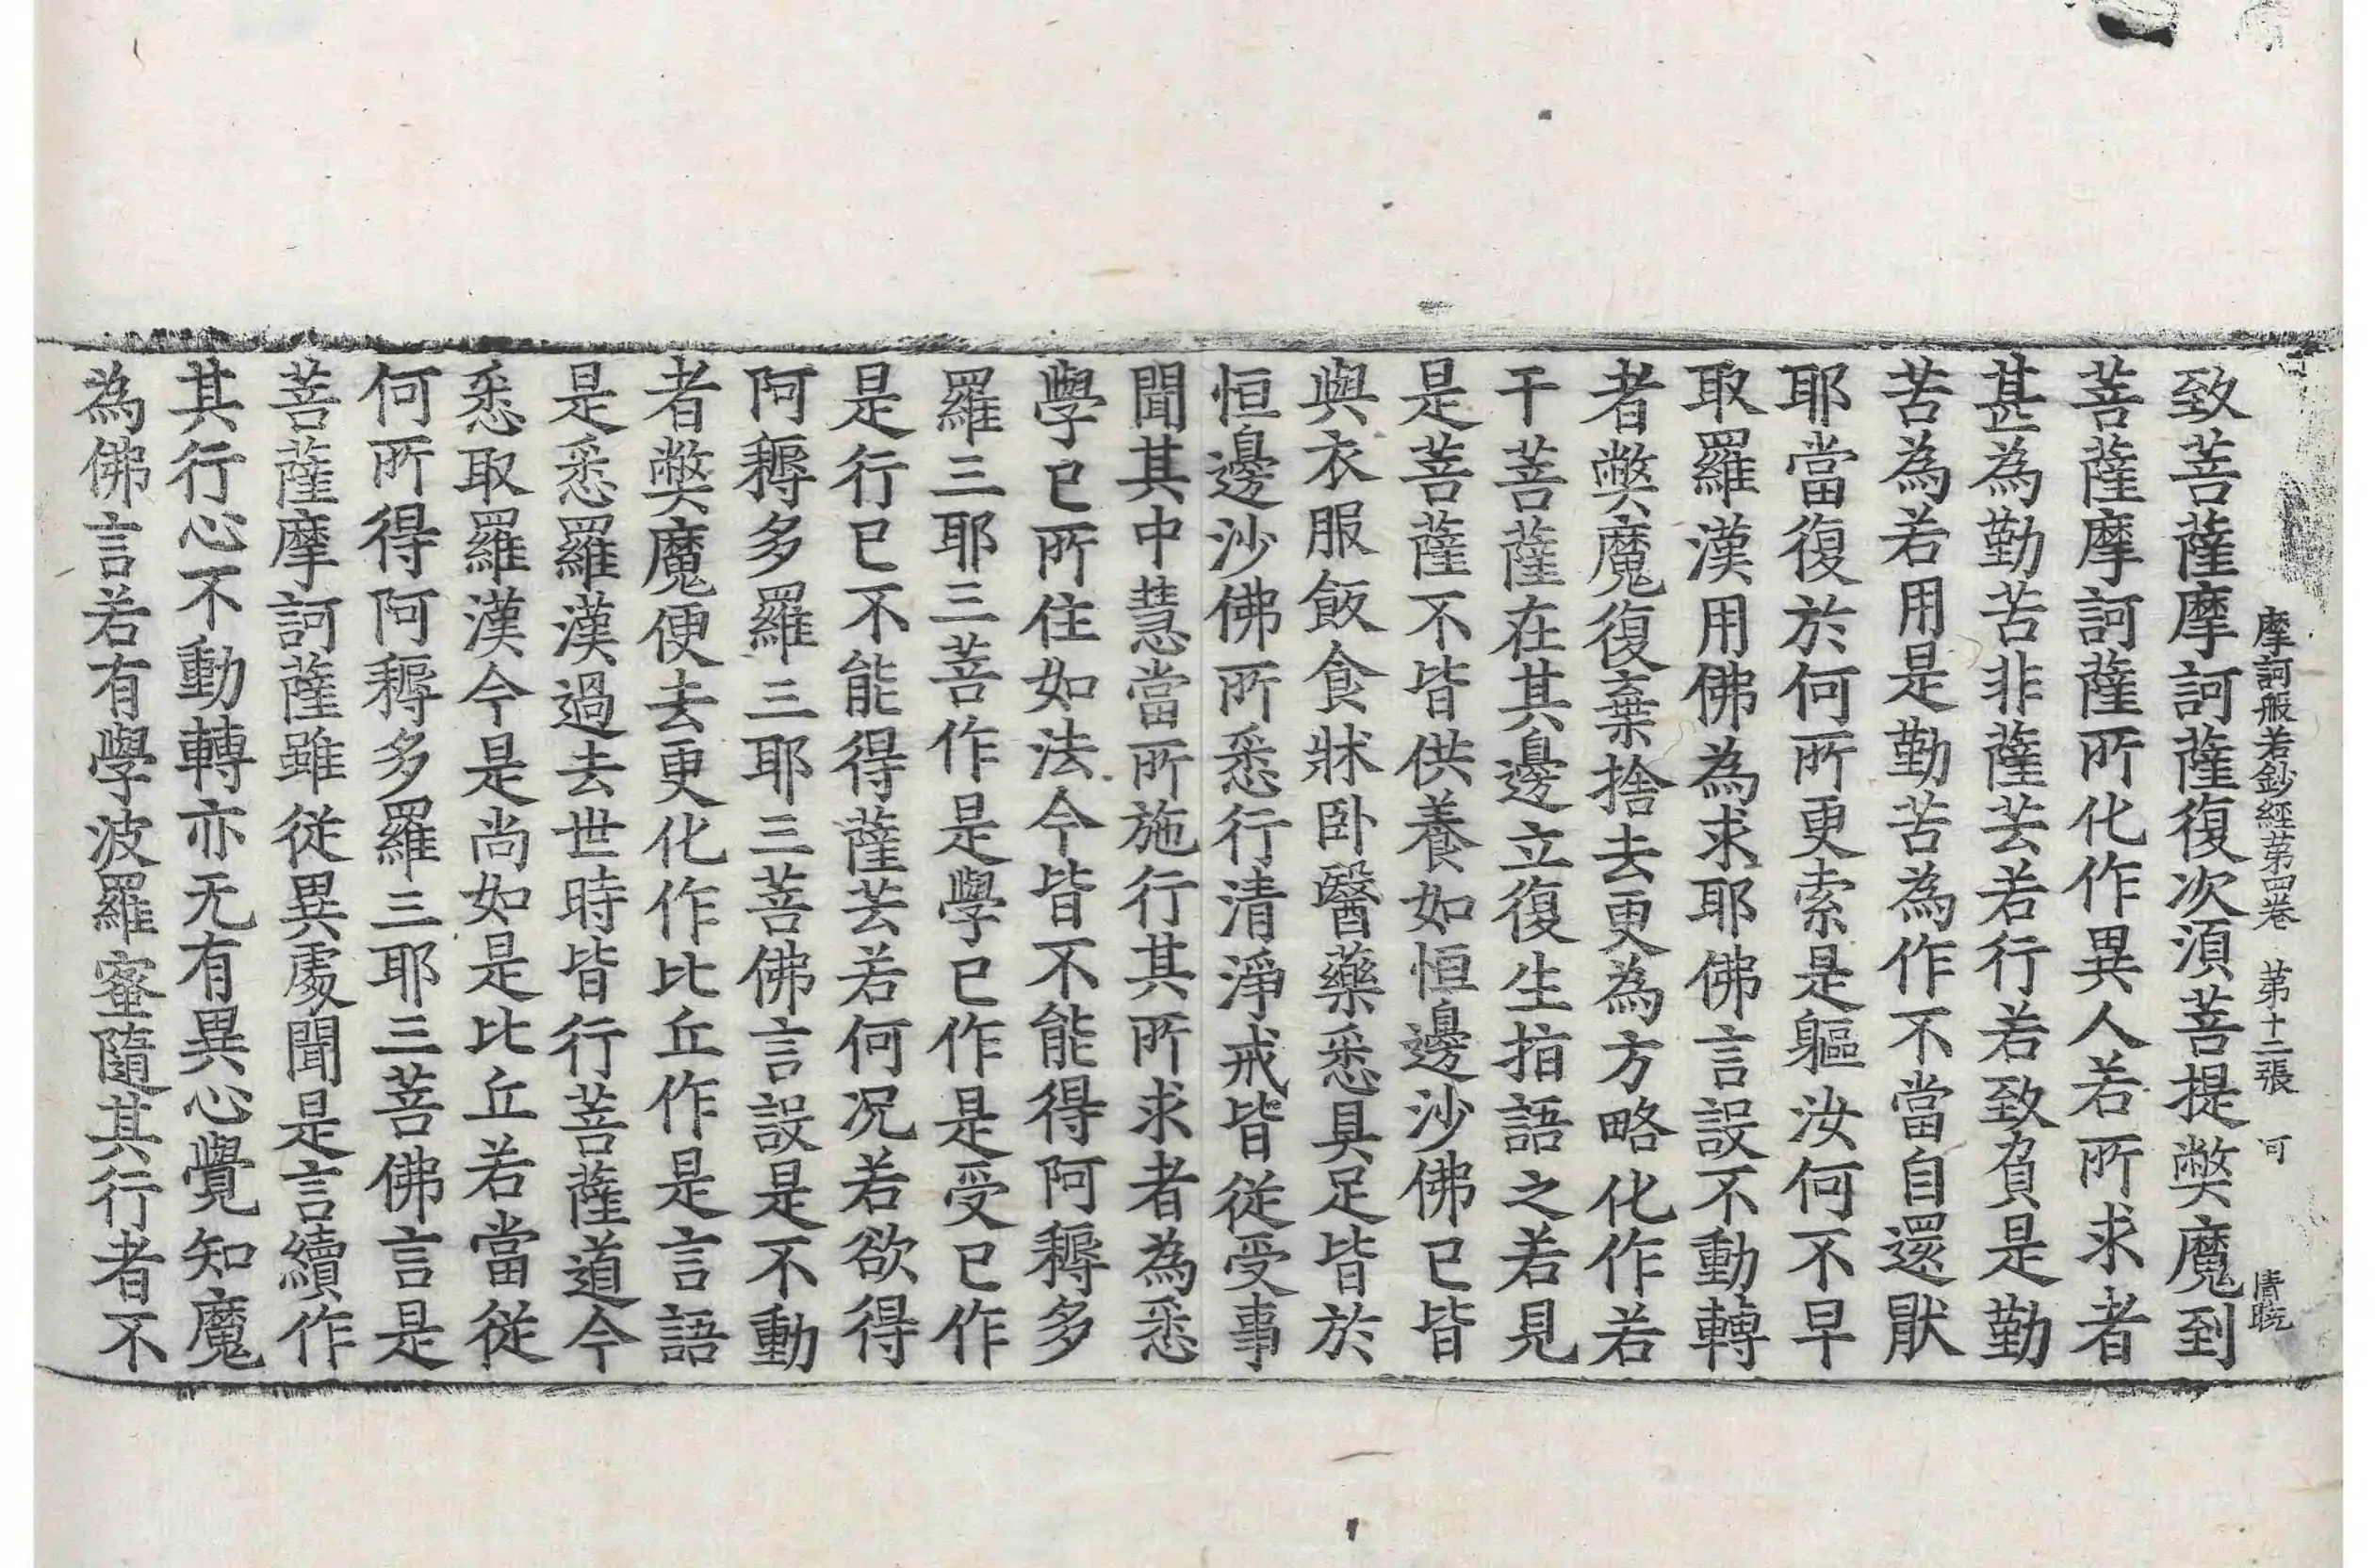 摩訶般若鈔經第四卷 第十二張 可 清
致菩薩摩訶薩復次須菩提弊魔到
菩薩摩訶薩所化作異人若所求者
甚為勤苦非薩芸若行若致負是勤
苦為若用是勤苦為作不當自還厭
耶當復於何所更索是軀汝何不早
取羅漢用佛為求耶佛言設不動轉
者弊魔復棄捨去更為方略化作若
干菩薩在其邊立復生指語之若見
是菩薩不皆供養如恒邊沙佛已皆
與衣服飯食牀卧醫藥悉具足皆於
恒邊沙佛所悉行清淨戒皆從受事
聞其中慧當所施行其所求者為悉
學已所住如法今皆不能得阿耨多
羅三耶三菩作是學已作是受已作
是行已不能得薩芸若何況若欲得
阿耨多羅三耶三菩佛言設是不動
者弊魔便去更化作比丘作是言語
是悉羅漢過去世時皆行菩薩道今
悉取羅漢今是尚如是比丘若當從
何所得阿耨多羅三耶三菩佛言是
菩薩摩訶薩雖從異處聞是言續作
其行心不動轉亦无有異心覺知魔
為佛言若有學波羅蜜隨其行者不